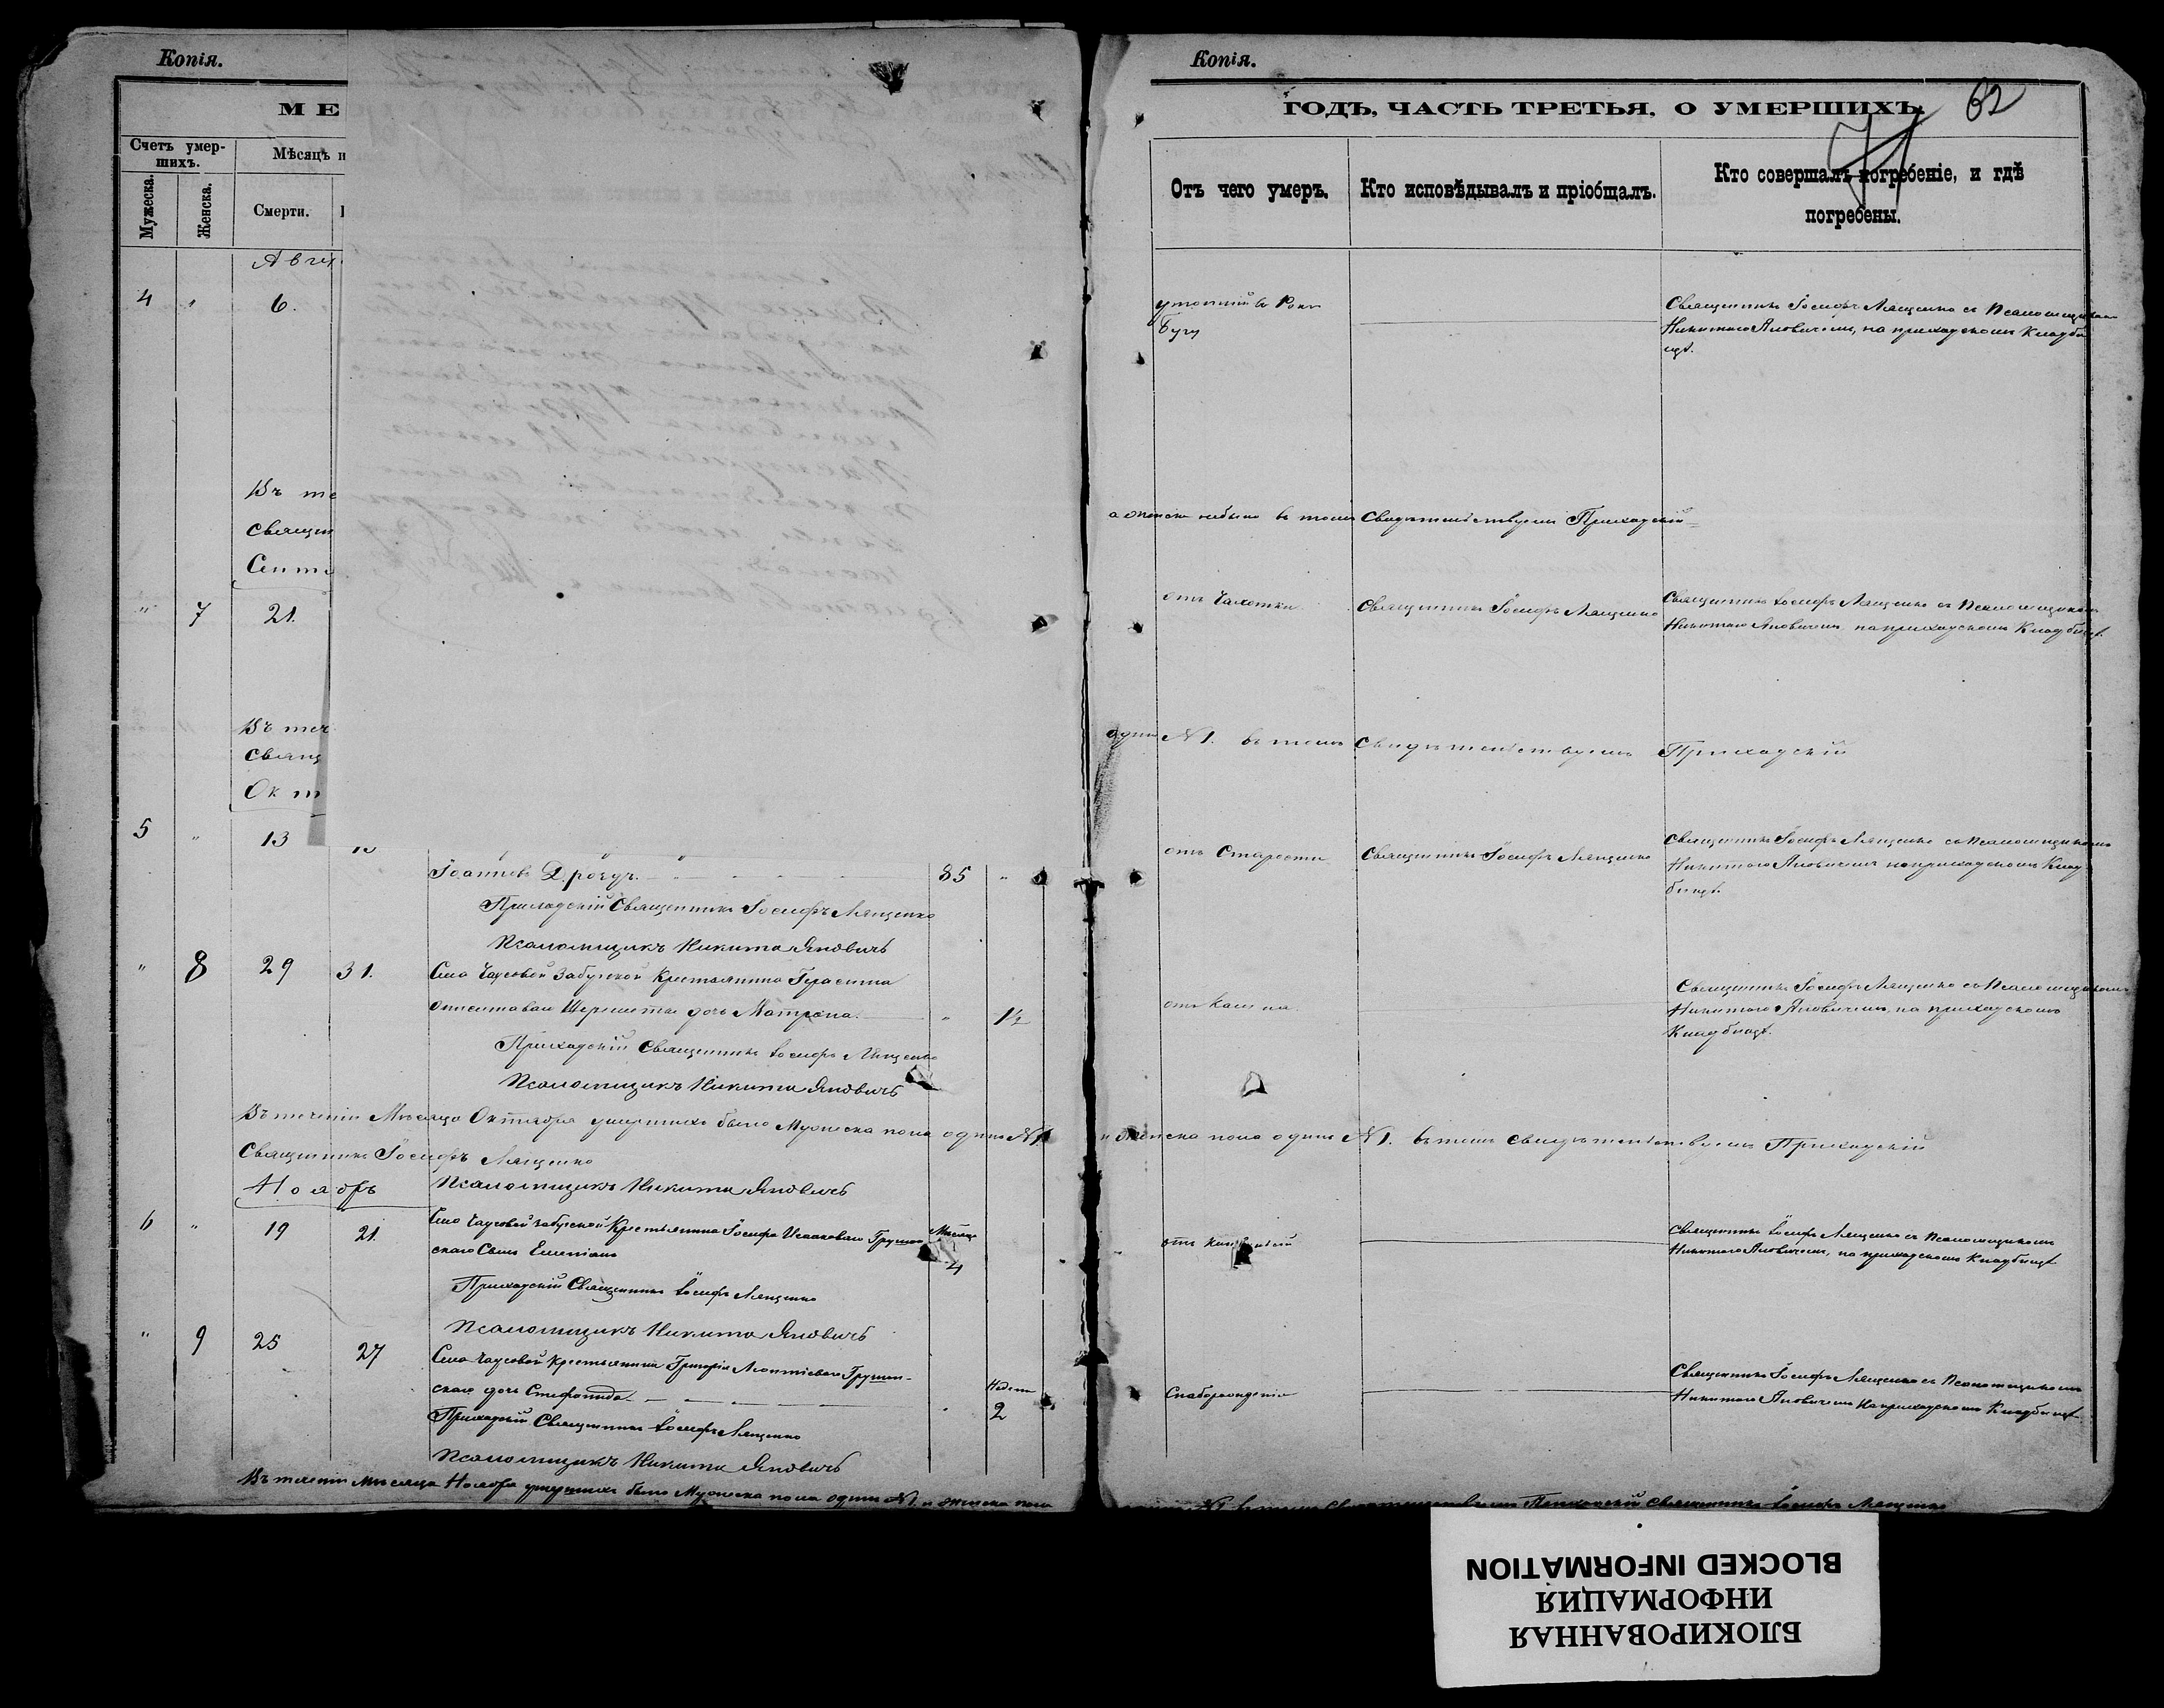 Копія.
МЕ
Счетъ умер-
шихъ.
Мѣсяцъ и
Мужеска.
Женска.
Смерти.
Авгу
4 " 6.
Въ те
Священ
Сентя
" 7 21.
Въ теч
Свящ
Окт
5 " 13
Іоанновъ Дрогуъ. 85 "
Приходскій Священникъ Іосифъ Лященко
Псаломщикъ Никита Яновичъ
" 8 29 31. Села Чаусовой Забугской Крестьянина Герасима
дочь Матрона. " 1½
Приходскій Священникъ Іосифъ Лященко
Псаломщикъ Никита Яновичъ
Въ теченіи Мѣсяца Октября умершихъ было Мужеска пола одинъ №1
Священникъ Іосифъ Лященко
Ноябрь Псаломщикъ Никита Яновичъ
6 " 19 21. Села Чаусовой Забугской Крестьянина Іосифа Исааковаго Грушев- Мѣсяца
скаго Сынъ Емеліанъ 4
Приходскій Священникъ Іосифъ Лященко
Псаломщикъ Никита Яновичъ
" 9 25 27 Села Чаусовой Крестьянина Григорія Леонтіеваго Грушев-
скаго дочь Стефанида Недели
2
Приходскій Священникъ Іосифъ Лященко
Псаломщикъ Никита Яновичъ
Въ теченіи мѣсяца Ноября умершихъ было Мужеска пола одинъ №1. и женска пола
Копія.
ГОДЪ, ЧАСТЬ ТРЕТЬЯ, О УМЕРШИХЪ.
62
71
Отъ чего умеръ.
Кто исповѣдывалъ и пріобщалъ.
Кто совершалъ погребеніе, и гдѣ
погребены.
утопшій въ Рѣкѣ
Бугу
Священникъ Іосифъ Лященко съ Псаломщикомъ
Никитою Яновичемъ, на приходскомъ Кладби
щѣ.
а женска небыло въ томъ Свидѣтельствуемъ Приходскій
отъ Чахотки Священникъ Іосифъ Лященко Священникъ Іосифъ Лященко съ Псаломщикомъ
Никитою Яновичемъ на приходскомъ Кладбищѣ.
одинъ №1. въ томъ Свидѣтельствуемъ Приходскій
отъ Старости Священникъ Іосифъ Лященко Священникъ Іосифъ Лященко со Псаломщикомъ
Никитою Яновичемъ на приходскомъ Клад
бищѣ.
отъ Кашля Священникъ Іосифъ Лященко со Псаломщикомъ
Никитою Яновичемъ, на приходскомъ
Кладбищѣ.
и женска пола одинъ №1. въ томъ свидѣтельствуемъ Приходскій
отъ Священникъ Іосифъ Лященко съ Псаломщикомъ
Никитою Яновичемъ, на приходскомъ Кладбищѣ
Слаборожденія Священникъ Іосифъ Лященко съ Псаломщикомъ
Никитою Яновичемъ на приходскомъ Кладбищѣ
№1. въ томъ свидѣтельствуемъ Приходскій Священникъ Іосифъ Лященко
БЛОКИРОВАННАЯ
ИНФОРМАЦИЯ
BLOCKED INFORMATION